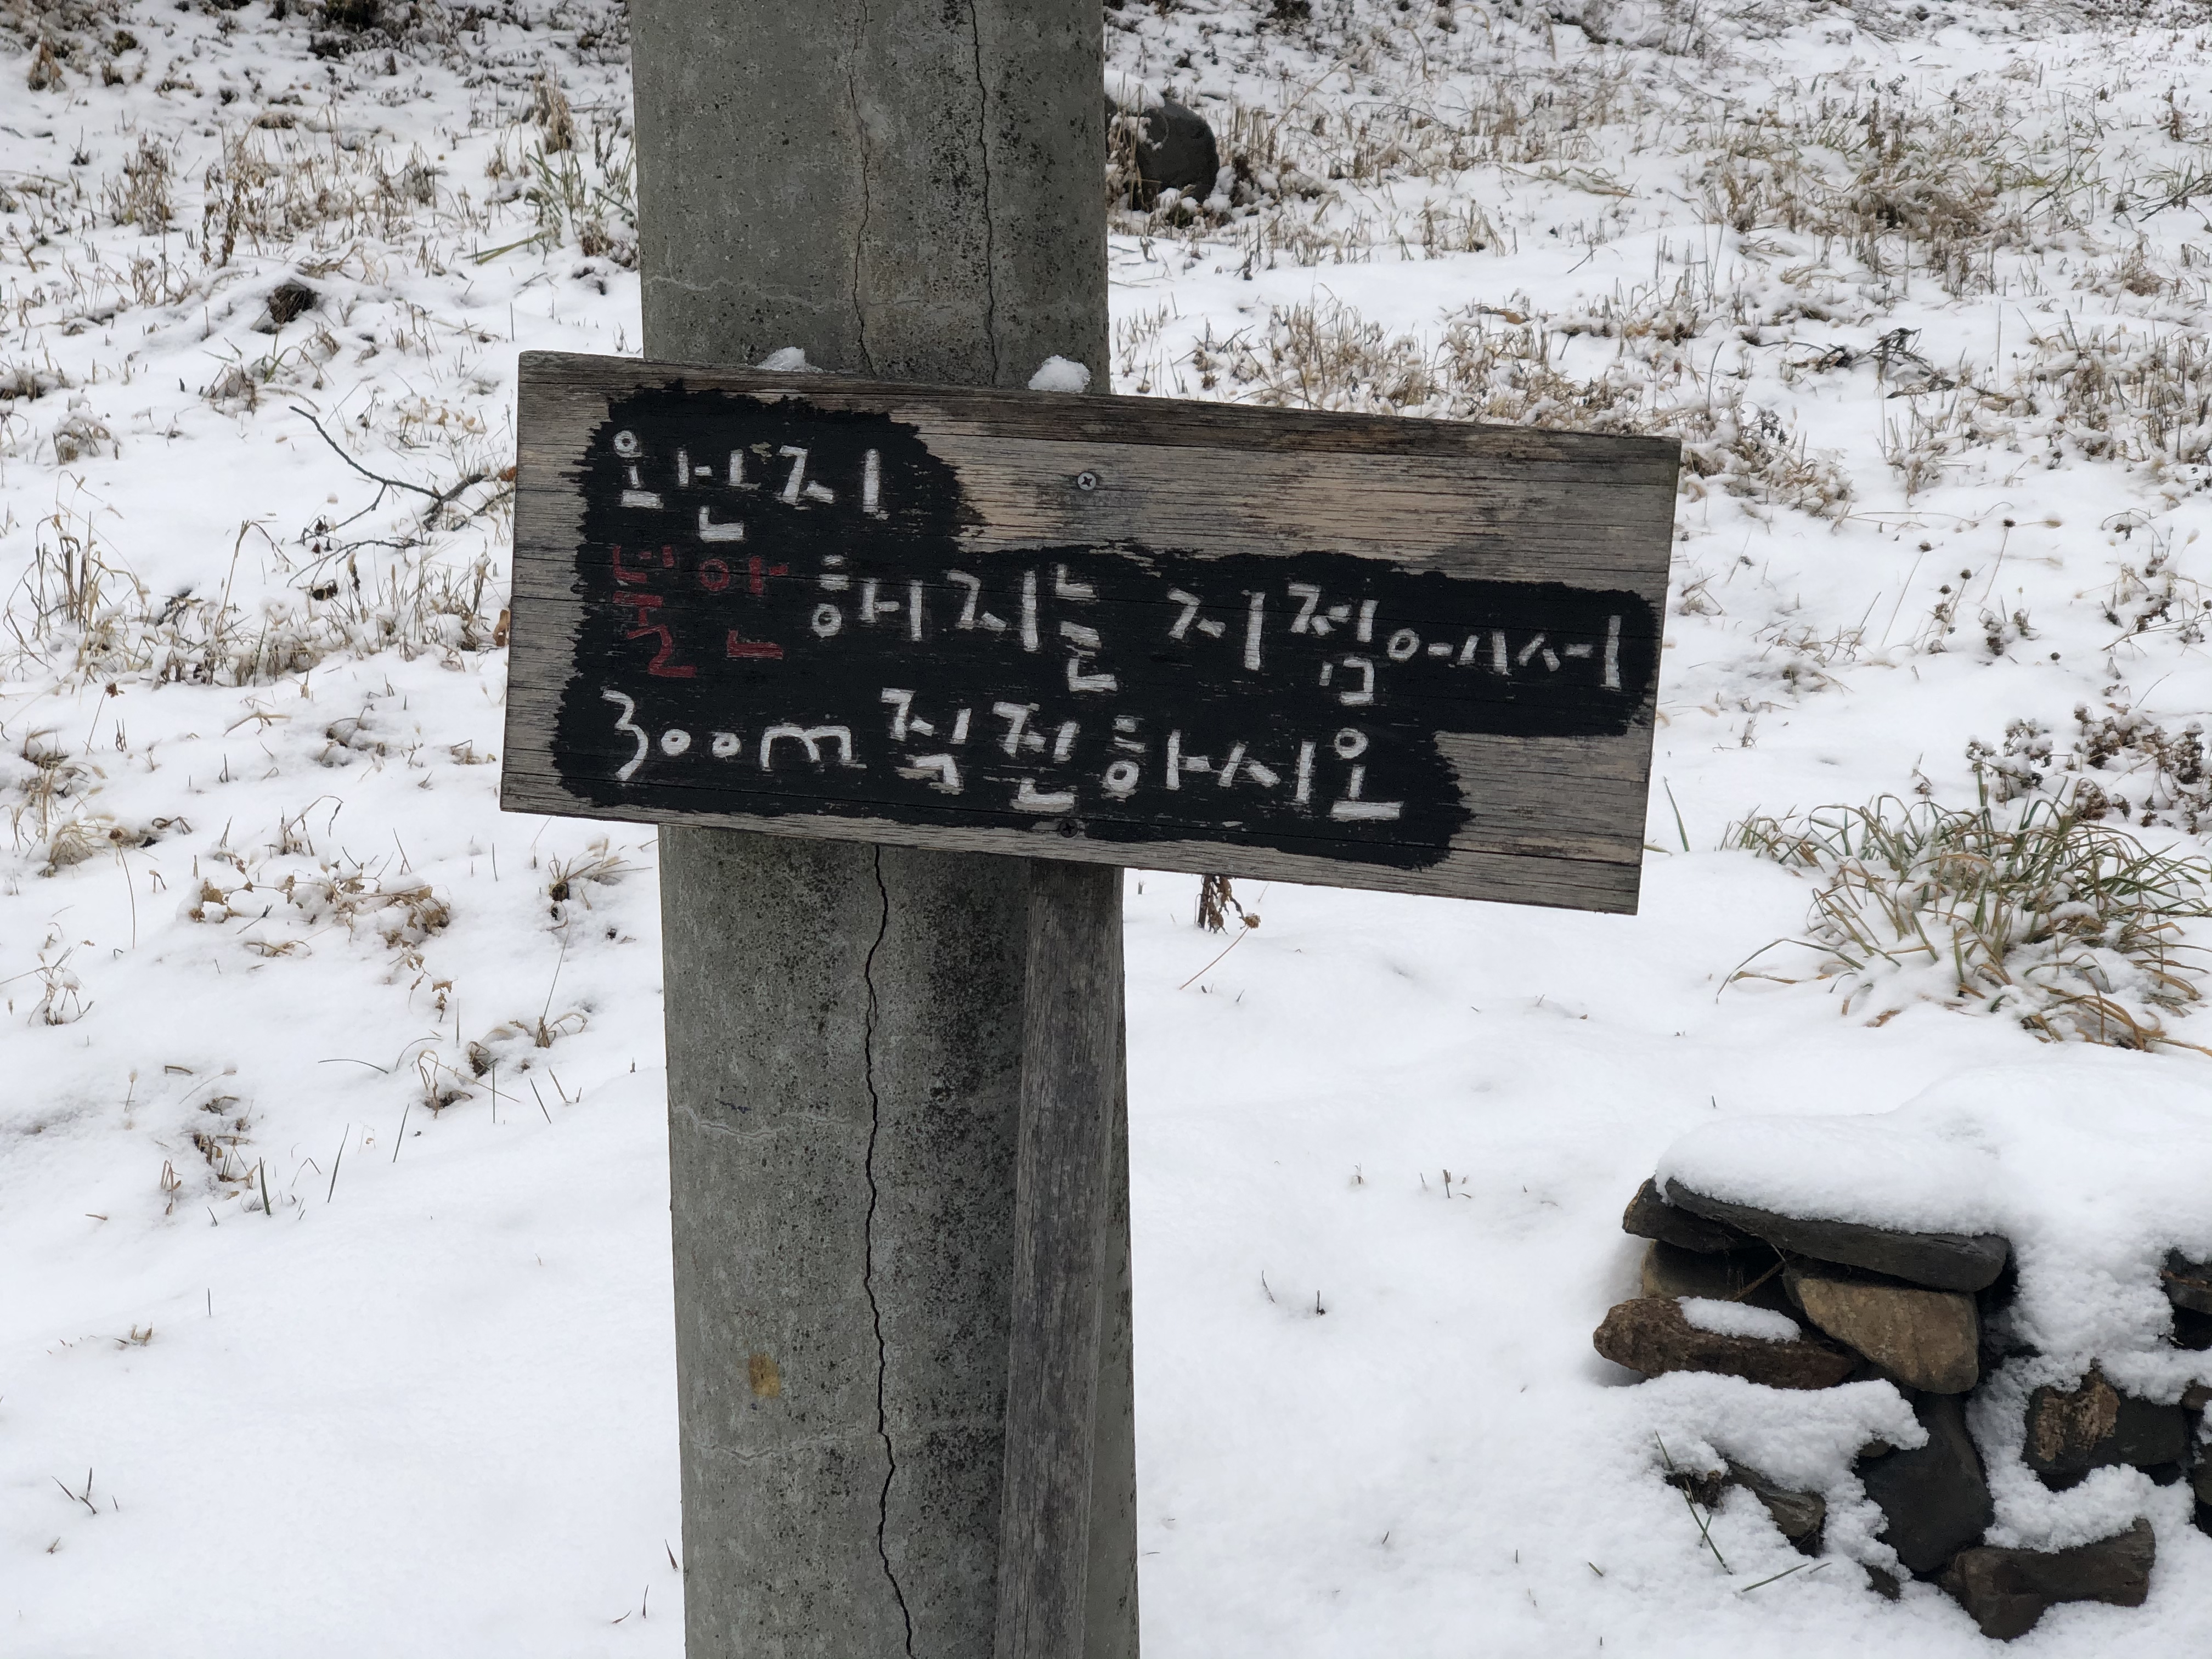 왼지
불안해지는 지점에서
300m 직진하시오